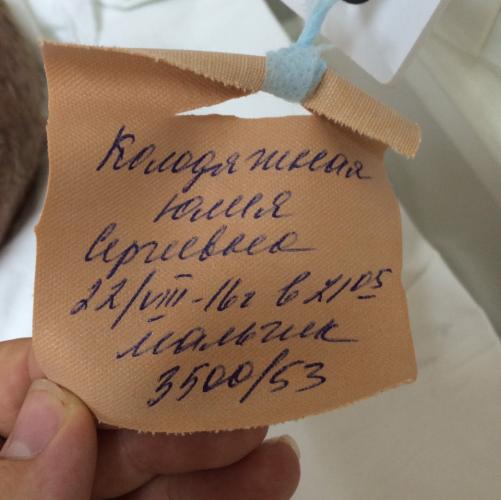 Колодяжная
Юлия
Сергеевна
22/VIII-16г в 21 05
мальчик
3500/53